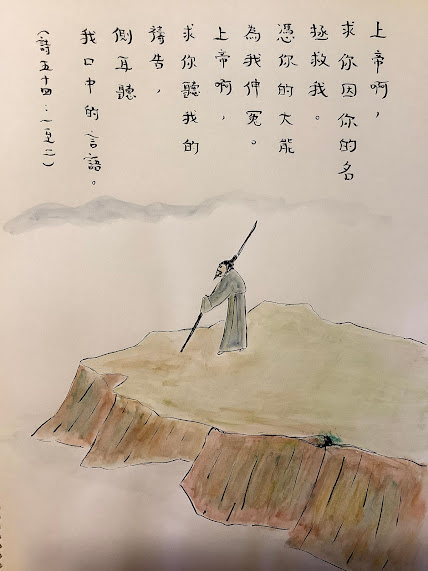 上帝啊，
求你因你的名
拯救我。
憑你的大能
為我伸冤。
上帝啊，
求你聽我的
禱告，
側耳聽
我口中的言語。
（詩五十四：一至二）